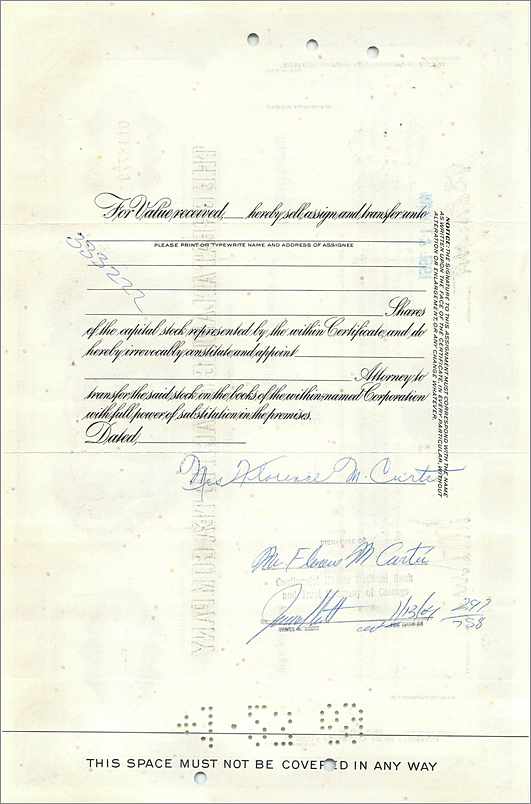 For Value received, hereby sell, assign and transfer unto
PLEASE PRINT OR TYPEWRITE NAME AND ADDRESS OF ASSIGNEE
Shares
of the capital stock represented by the within Certificate, and do
hereby irrevocably constitute and appoint
Attorney to
transfer the said stock on the books of the within-named Corporation
with full power of substitution in the premises.
Dated,
NOTICE: THE SIGNATURE TO THIS ASSIGNMENT MUST CORRESPOND WITH THE NAME
AS WRITTEN UPON THE FACE OF THE CERTIFICATE, IN EVERY PARTICULAR, WITHOUT
ALTERATION OR ENLARGEMENT, OR ANY CHANGE WHATEVER.
Mrs Florence M. Curtis
M Curtis
and Trust Company of Chicago
THIS SPACE MUST NOT BE COVERED IN ANY WAY